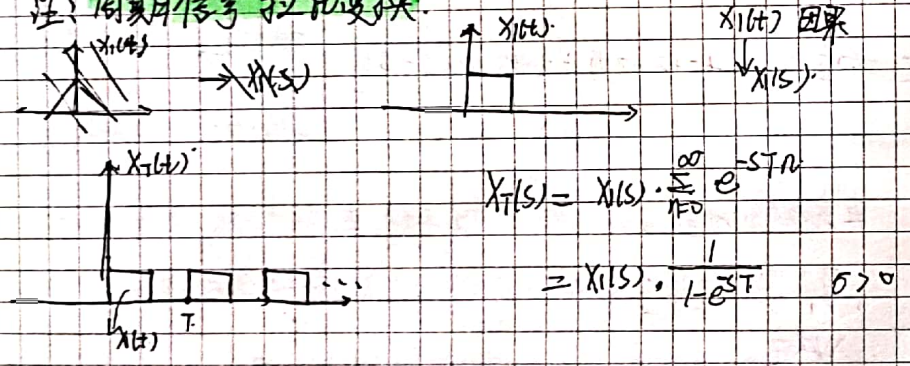 注：周期信号拉氏变换.
X₁(t)
X₁(t)
X₁(t) 因果
→ X₁(S)
↓ X₁(S).
X_T(t)
X_T(S) = X₁(S) · \sum_{n=0}^{∞} e^{-STn}
= X₁(S) · \frac{1}{1-e^{-ST}} σ>0
T.
X₁(t)
...